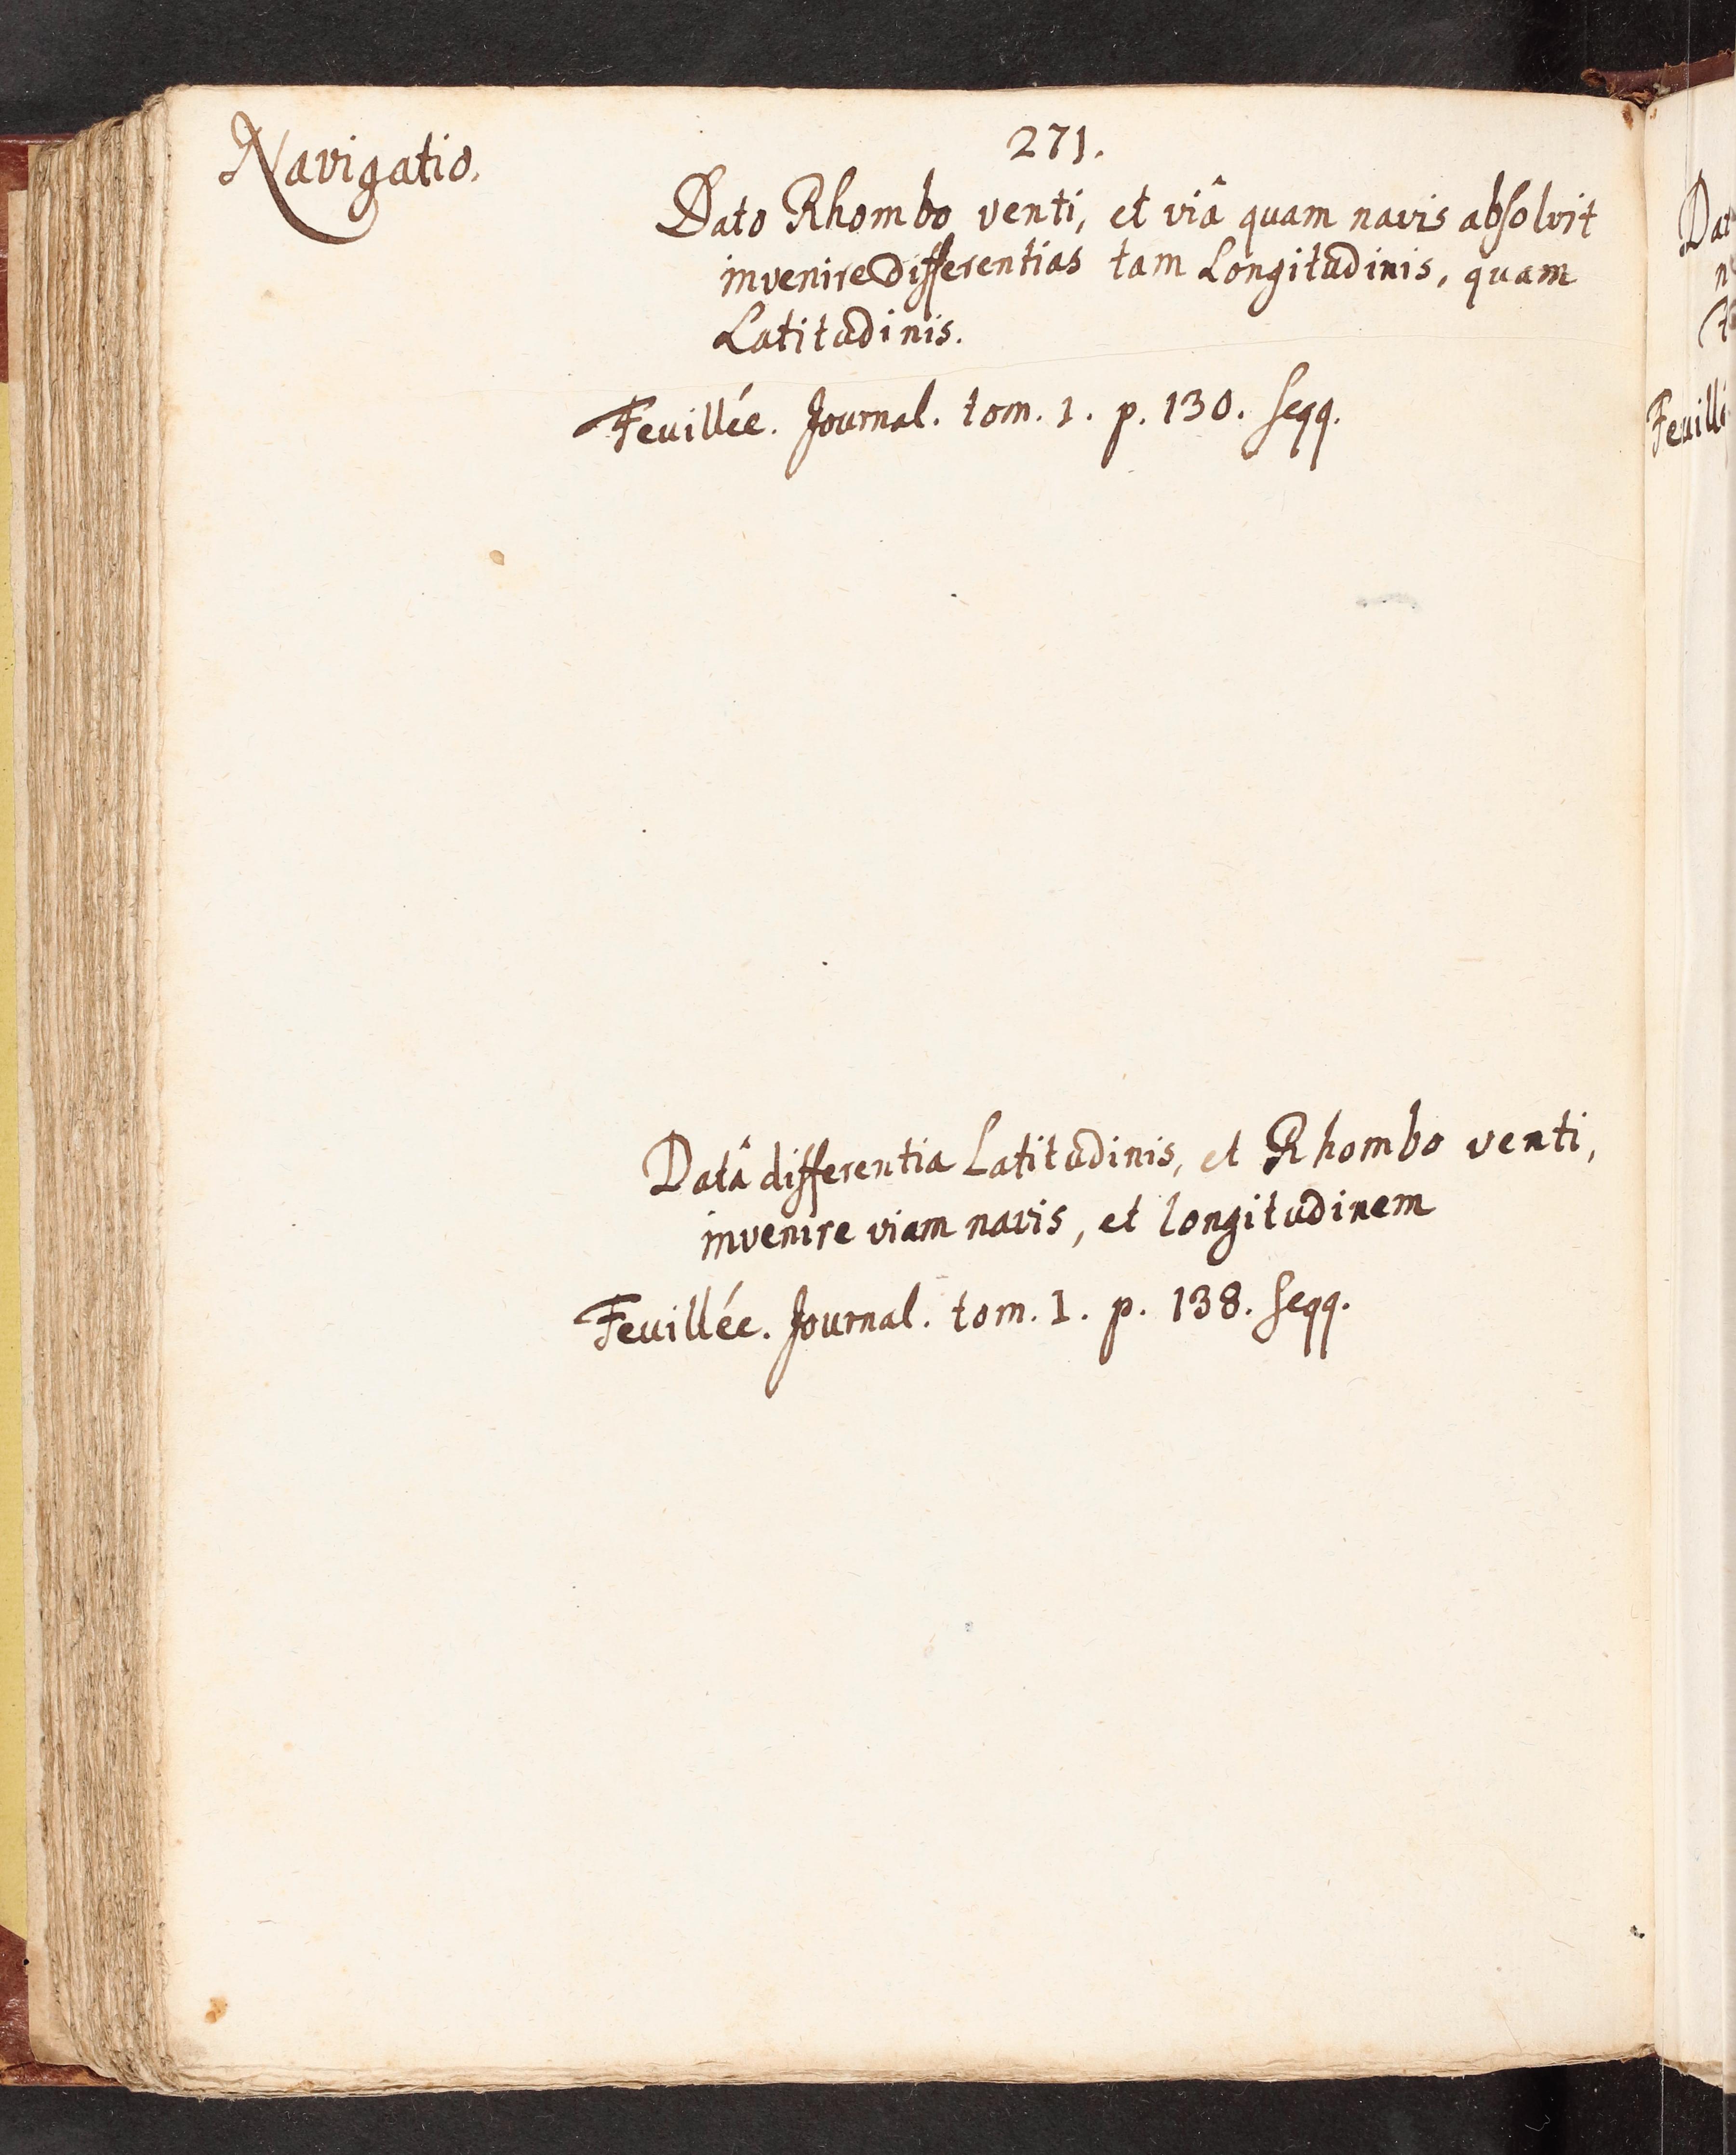 Navigatio.
271.
Dato Rhombo venti, et viâ quam navis absolvit
invenire differentias tam Longitudinis, quam
Latitudinis.
Feuillée. Journal. tom. 1. p. 130. seqq.
Datâ differentia Latitudinis, et Rhombo venti,
invenire viam navis, et longitudinem
Feuillée. Journal. tom. 1. p. 138. seqq.